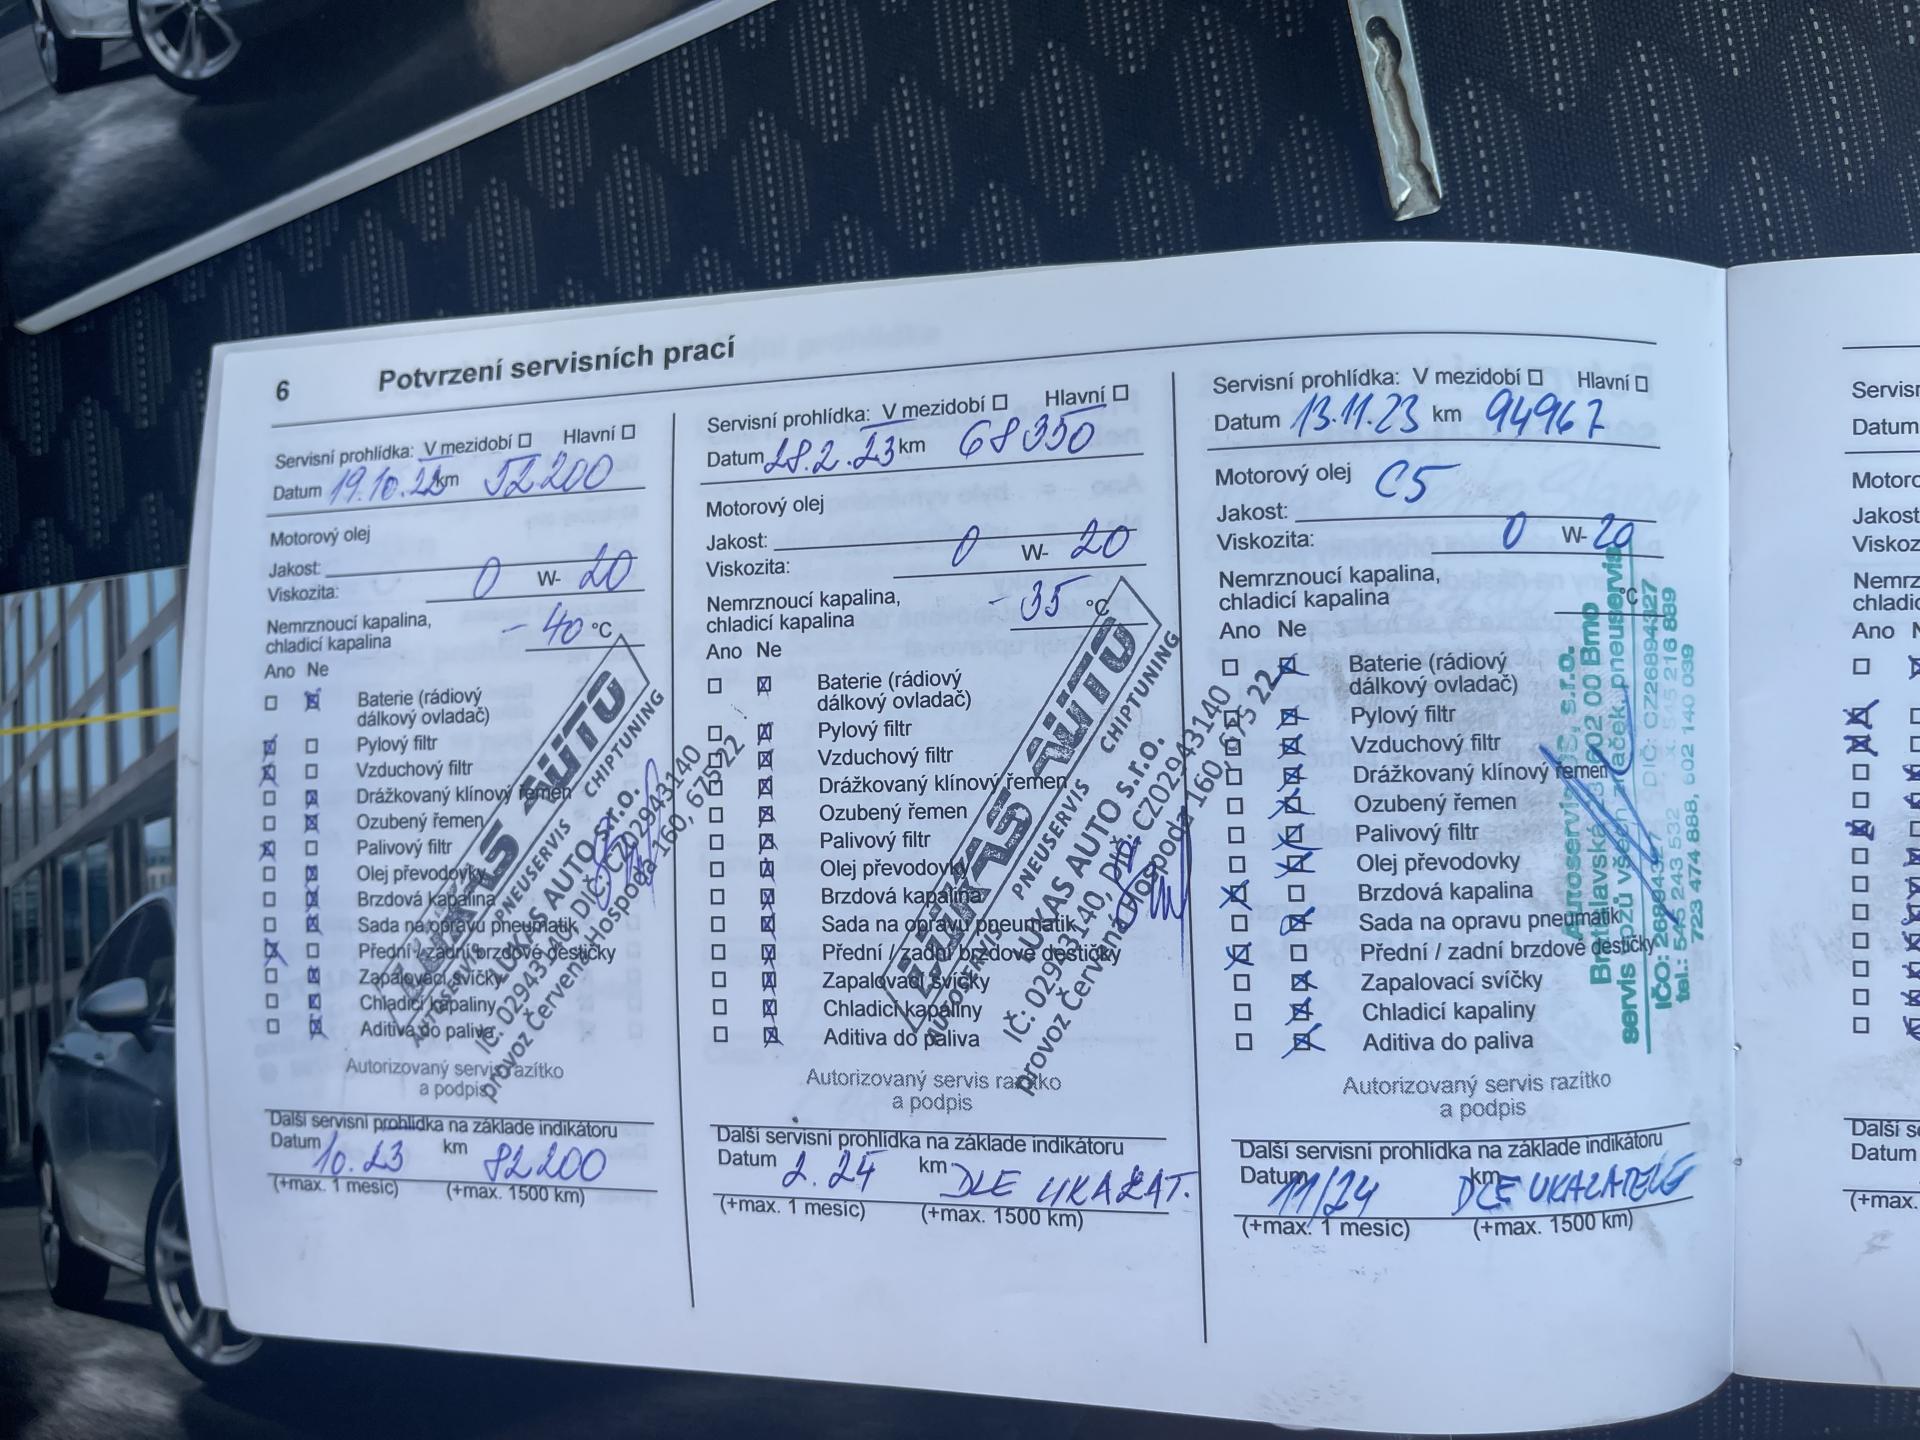 6 Potvrzení servisních prací
Servisní prohlídka: V mezidobí Hlavní
Datum 19.10.22 km 52200
Motorový olej
Jakost:
Viskozita: 0 W- 20
Nemrznoucí kapalina,
chladicí kapalina - 40 °C
Ano Ne
Baterie (rádiový
dálkový ovladač)
Pylový filtr
Vzduchový filtr
Drážkovaný klínový řemen
Ozubený řemen
Palivový filtr
Olej převodovky
Brzdová kapalina
Sada na opravu pneumatik
Přední / zadní brzdové destičky
Zapalovací svíčky
Chladicí kapaliny
Aditiva do paliva
LUKAS AUTO
PNEUSERVIS CHIPTUNING
LUKAS AUTO s.r.o.
IČ: 02943140, DIČ: CZ02943140
provoz Červená Hospoda 160, 675 22
Autorizovaný servis razítko
a podpis
Další servisní prohlídka na základě indikátoru
Datum 10.23 km 82200
(+max. 1 mesíc) (+max. 1500 km)
Servisní prohlídka: V mezidobí Hlavní
Datum 28.2.23 km 68350
Motorový olej
Jakost:
Viskozita: 0 W- 20
Nemrznoucí kapalina,
chladicí kapalina - 35 °C
Ano Ne
Baterie (rádiový
dálkový ovladač)
Pylový filtr
Vzduchový filtr
Drážkovaný klínový řemen
Ozubený řemen
Palivový filtr
Olej převodovky
Brzdová kapalina
Sada na opravu pneumatik
Přední / zadní brzdové destičky
Zapalovací svíčky
Chladicí kapaliny
Aditiva do paliva
LUKAS AUTO
AUTOSERVIS PNEUSERVIS CHIPTUNING
LUKAS AUTO s.r.o.
IČ: 02943140, DIČ: CZ02943140
provoz Červená Hospoda 160, 675 22
Autorizovaný servis razítko
a podpis
Další servisní prohlídka na základě indikátoru
Datum 2.24 km DLE UKAZAT.
(+max. 1 mesíc) (+max. 1500 km)
Servisní prohlídka: V mezidobí Hlavní
Datum 13.11.23 km 94967
Motorový olej C5
Jakost:
Viskozita: 0 W- 20
Nemrznoucí kapalina,
chladicí kapalina °C
Ano Ne
Baterie (rádiový
dálkový ovladač)
Pylový filtr
Vzduchový filtr
Drážkovaný klínový řemen
Ozubený řemen
Palivový filtr
Olej převodovky
Brzdová kapalina
Sada na opravu pneumatik
Přední / zadní brzdové destičky
Zapalovací svíčky
Chladicí kapaliny
Aditiva do paliva
s.r.o.
602 00 Brno
servis vozů všech značek, pneuservis
IČO: 26894327 DIČ: CZ26894327
tel.: 545 243 532
723 474 888, 602 140 039
Autorizovaný servis razítko
a podpis
Další servisní prohlídka na základě indikátoru
Datum 11/24 km DLE UKAZATELE
(+max. 1 mesíc) (+max. 1500 km)
Datum
Jakost:
Ano
Datum
(+max.